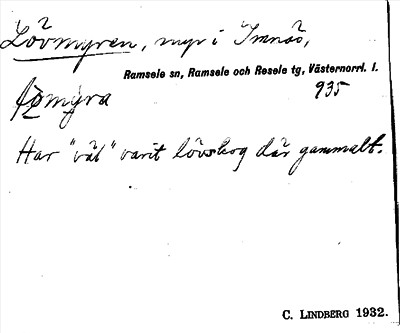 Lövmyren, myr i Imnäs,
Ramsele sn, Ramsele och Resele tg, Västernorrl. l.
935
Har "väl" varit lövskog där gammalt.
C. LINDBERG 1932.